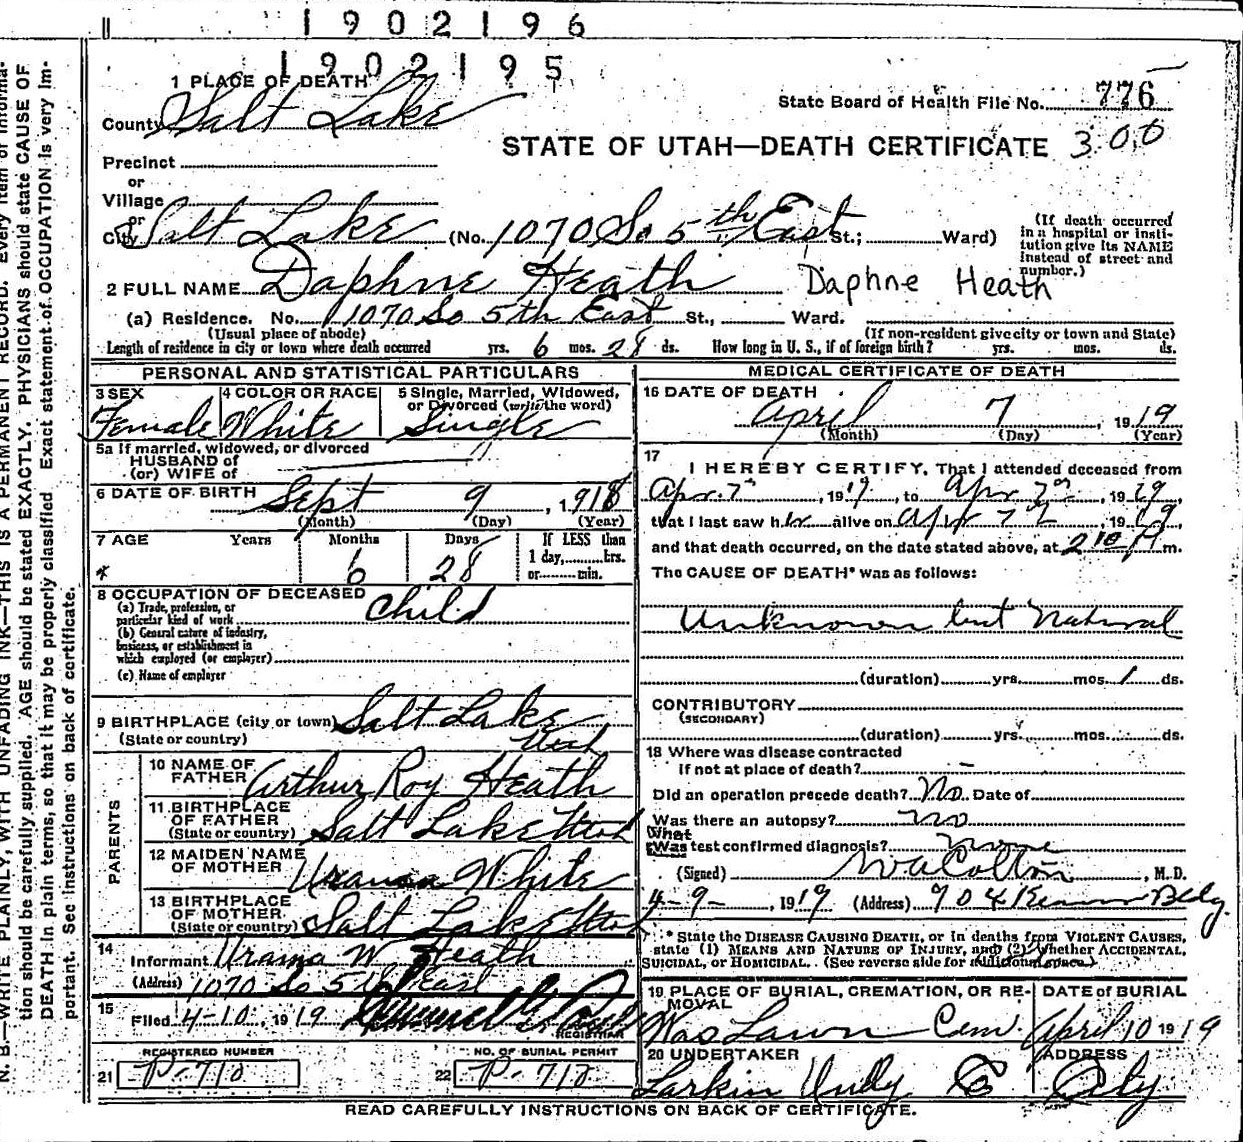 1902196
1902195
1 PLACE OF DEATH
County Salt Lake
State Board of Health File No. 776
STATE OF UTAH—DEATH CERTIFICATE 300
Precinct
or
Village
or
City Salt Lake (No. 1070 So 5th East St.; Ward)
(If death occurred in a hospital or institution give its NAME instead of street and number.)
2 FULL NAME Daphne Heath Daphne Heath
(a) Residence. No. 1070 So 5th East St., Ward.
(Usual place of abode) (If non-resident give city or town and State)
Length of residence in city or town where death occurred yrs. 6 mos. 28 ds. How long in U. S., if of foreign birth? yrs. mos. ds.
PERSONAL AND STATISTICAL PARTICULARS
3 SEX 4 COLOR OR RACE 5 Single, Married, Widowed, or Divorced (write the word)
Female White Single
5a If married, widowed, or divorced
HUSBAND of
(or) WIFE of
6 DATE OF BIRTH Sept 9, 1918
(Month) (Day) (Year)
7 AGE Years Months Days If LESS than
1 day, hrs.
6 28 or min.
8 OCCUPATION OF DECEASED Child
(a) Trade, profession, or
particular kind of work
(b) General nature of industry,
business, or establishment in
which employed (or employer)
(c) Name of employer
9 BIRTHPLACE (city or town) Salt Lake
(State or country) Utah
PARENTS
10 NAME OF FATHER Arthur Roy Heath
11 BIRTHPLACE OF FATHER
(State or country) Salt Lake Utah
12 MAIDEN NAME OF MOTHER Urania White
13 BIRTHPLACE OF MOTHER
(State or country) Salt Lake Utah
14 Informant Urania W. Heath
(Address) 1070 So 5th East
15 Filed 4-10, 1919
REGISTRAR
REGISTERED NUMBER NO. OF BURIAL PERMIT
21 P-710 22 P-710
MEDICAL CERTIFICATE OF DEATH
16 DATE OF DEATH
April 7 1919
(Month) (Day) (Year)
17
I HEREBY CERTIFY, That I attended deceased from
Apr. 7th, 1919, to Apr 7th, 1919,
that I last saw her alive on Apr 7th, 1919,
and that death occurred, on the date stated above, at m.
The CAUSE OF DEATH* was as follows:
Unknown but Natural
(duration) yrs. mos. 1 ds.
CONTRIBUTORY
(SECONDARY)
(duration) yrs. mos. ds.
18 Where was disease contracted
if not at place of death? —
Did an operation precede death? No Date of
Was there an autopsy? no
What
Was test confirmed diagnosis? none
(Signed) W A Colton, M. D.
4-9-, 1919 (Address) 904 Kearns Bldg.
* State the DISEASE CAUSING DEATH, or in deaths from VIOLENT CAUSES,
state (1) MEANS AND NATURE OF INJURY, and (2) whether ACCIDENTAL,
SUICIDAL, or HOMICIDAL. (See reverse side for additional space.)
19 PLACE OF BURIAL, CREMATION, OR REMOVAL DATE OF BURIAL
Was Lawn Cem. April 10 1919
20 UNDERTAKER ADDRESS
Larkin Undg Co City
READ CAREFULLY INSTRUCTIONS ON BACK OF CERTIFICATE.
N. B.—WRITE PLAINLY, WITH UNFADING INK—THIS IS A PERMANENT RECORD. Every item of informa-
tion should be carefully supplied. AGE should be stated EXACTLY. PHYSICIANS should state CAUSE OF
DEATH in plain terms, so that it may be properly classified. Exact statement of OCCUPATION is very im-
portant. See instructions on back of certificate.